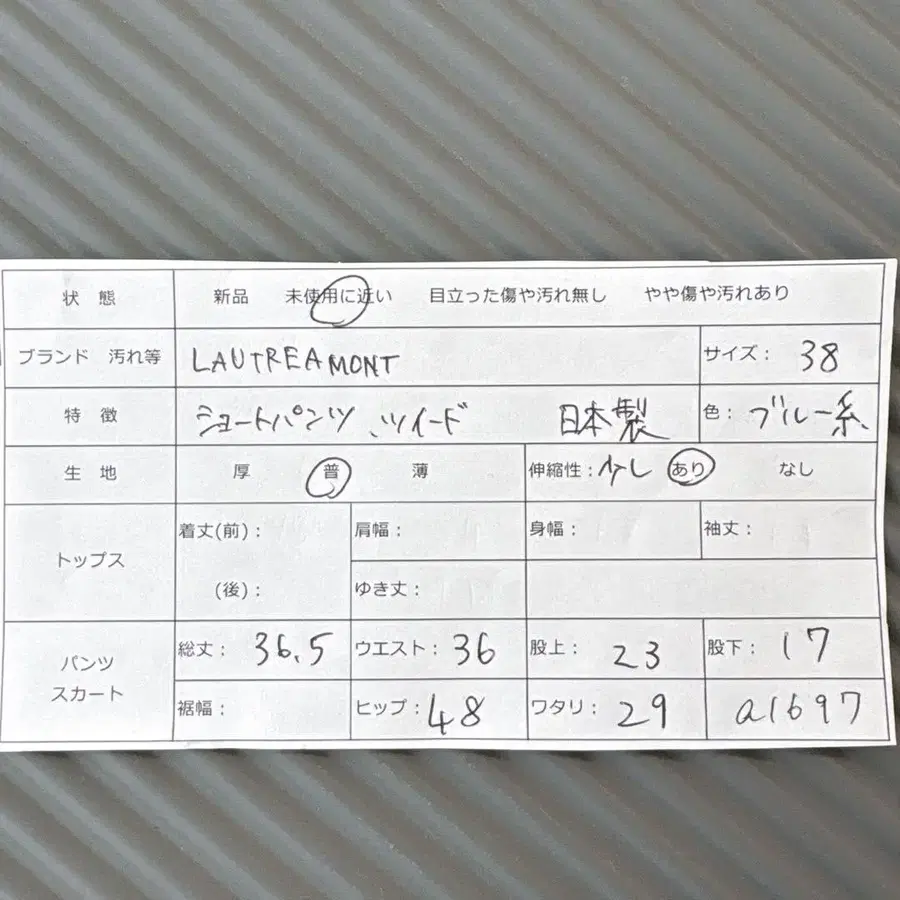 状 態 新品 未使用に近い 目立った傷や汚れ無し やや傷や汚れあり
ブランド 汚れ等 LAUTREAMONT サイズ: 38
特 徴 ショートパンツ、ツイード 日本製 色: ブルー系
生 地 厚 普 薄 伸縮性:少し あり なし
トップス 着丈(前): 肩幅: 身幅: 袖丈:
(後): ゆき丈:
パンツ スカート 総丈: 36.5 ウエスト: 36 股上: 23 股下: 17
裾幅: ヒップ: 48 ワタリ: 29 a1697